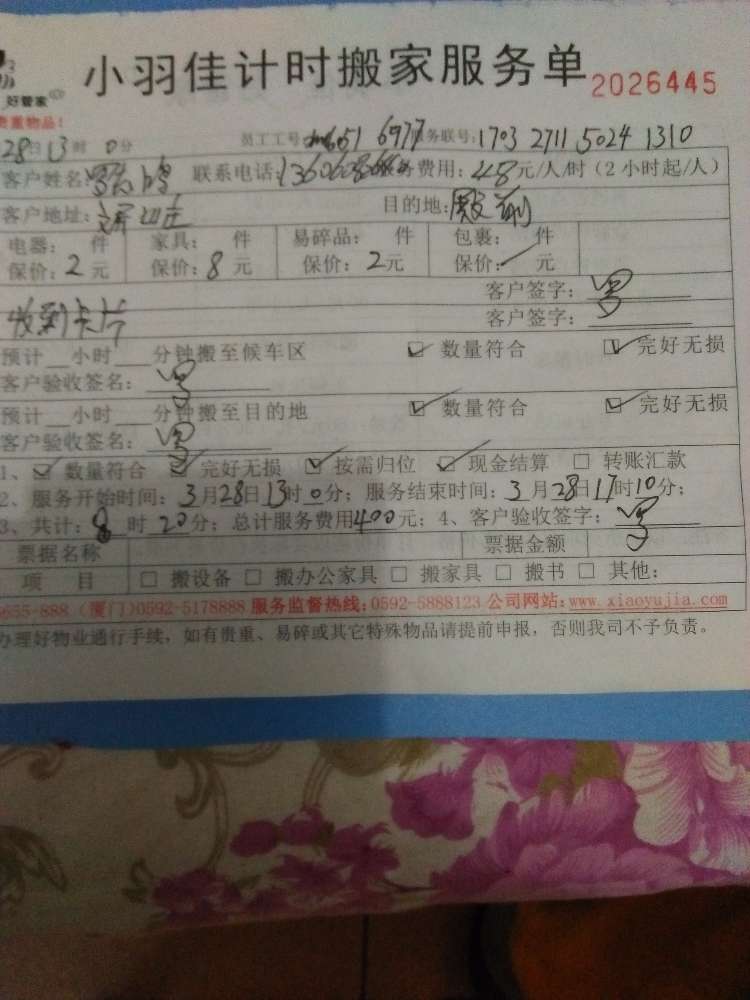 小羽佳计时搬家服务单 2026445
好管家
贵重物品！
28日13时0分 员工工号: 651 6977 服务联号: 1703 2711 5024 1310
客户姓名: 罗 鸿 联系电话: 费用: 48元/人/时（2小时起/人）
客户地址: 目的地: 殿前
电器： 件 家具： 件 易碎品： 件 包裹： 件
保价：2元 保价：8元 保价：2元 保价： 元
客户签字： 罗
收到卡片 客户签字： 罗
预计 小时 分钟搬至候车区 ☑ 数量符合 ☑ 完好无损
客户验收签名： 罗
预计 小时 分钟搬至目的地 ☑ 数量符合 ☑ 完好无损
客户验收签名： 罗
1、☑ 数量符合 ☑ 完好无损 ☑ 按需归位 ☑ 现金结算 □ 转账汇款
2、服务开始时间：3月28日13时0分；服务结束时间：3月28日17时10分；
3、共计：8时20分；总计服务费用400元；4、客户验收签字： 罗
票据名称 票据金额
项 目 □ 搬设备 □ 搬办公家具 □ 搬家具 □ 搬书 □ 其他：
6655-888 (厦门)0592-5178888 服务监督热线:0592-5888123 公司网站:www.xiaoyujia.com
办理好物业通行手续，如有贵重、易碎或其它特殊物品请提前申报，否则我司不予负责。